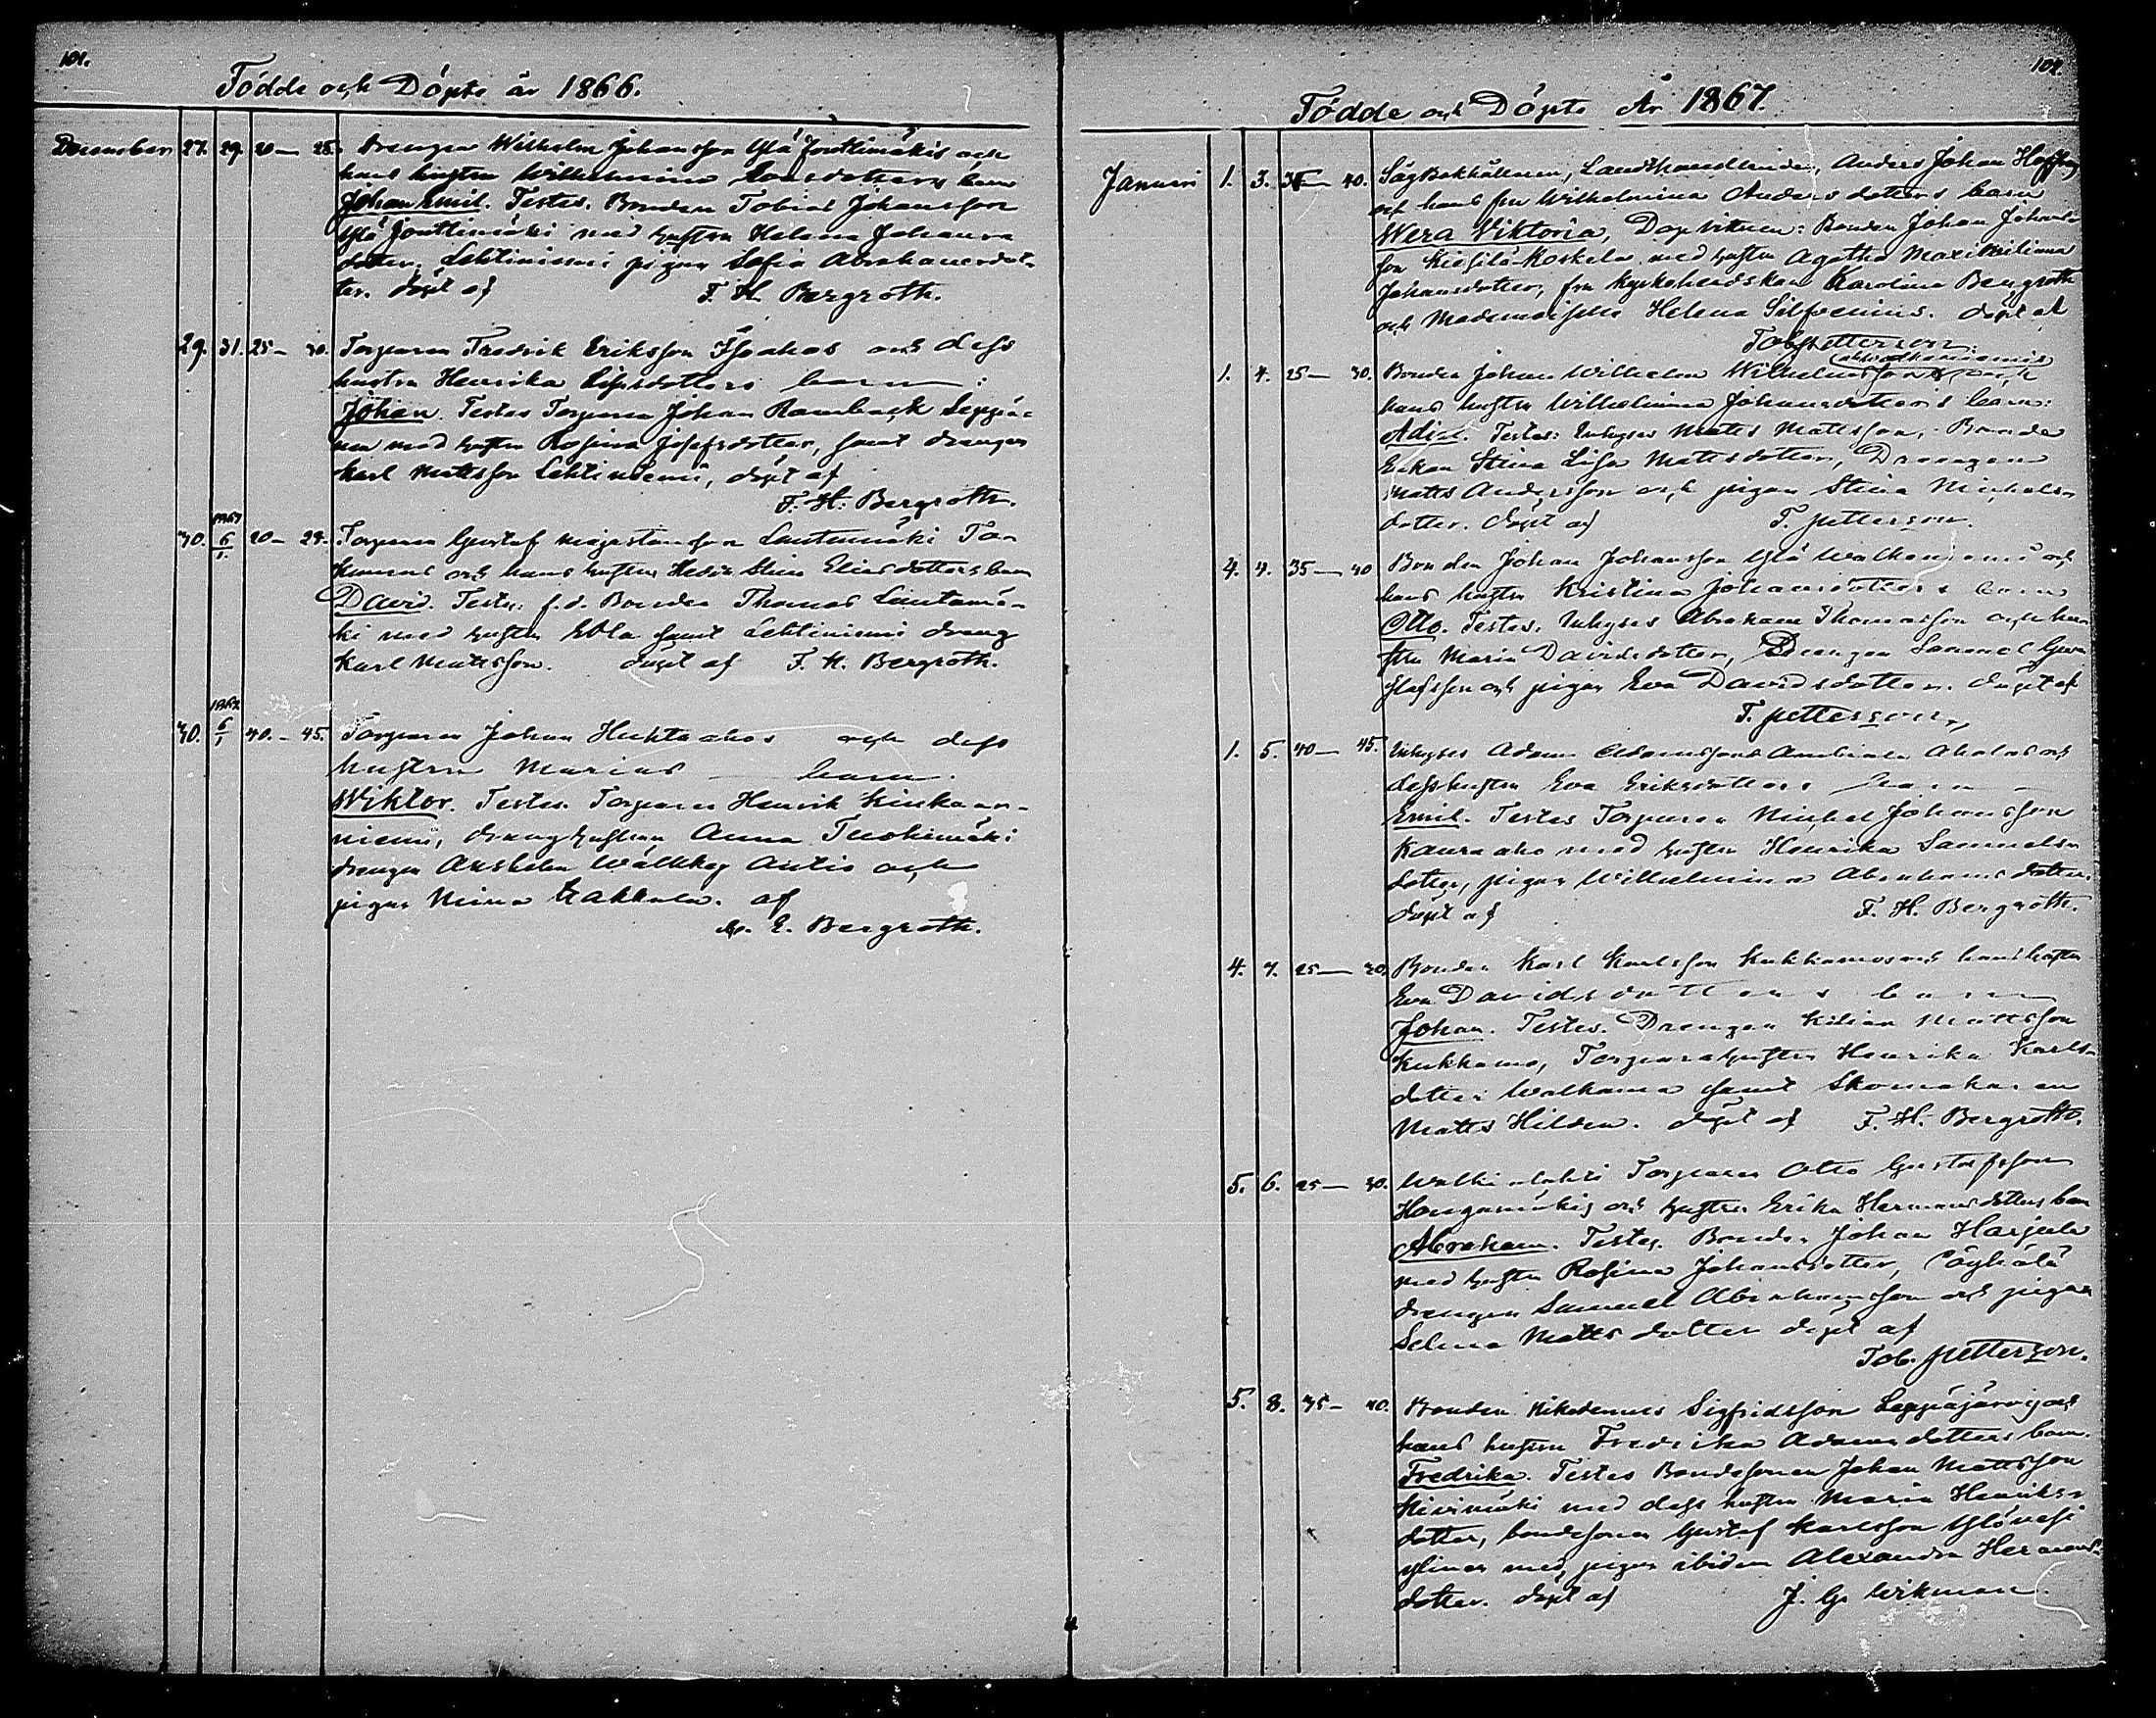 101.
Födde och Döpte år 1866.
December 27. 29. 20 — 25. Drengen Wilhelm Johansson Ylä Jouttimäkis och
hans hustru Wilhelmina barn
Johan Emil. Testes. Bonden Tobias Johansson
Ylä Jouttimäki med hustru Helena Johans
dotter, Lehtiniemi pigan Sofia Abrahamsdot-
ter. döpt af F. H. Bergroth.
29. 31. 25 — 30. Torparen Fredrik Eriksson och dess
hustru Henrika barn:
Johan. Testes Torparen Johan Ramback Seppä-
nen med hustru Rosina Josefsdotter, samt drengen
Karl Mattsson Lehtiniemi, döpt af
F. H. Bergroth.
30. 1867 6/1 20 — 25. Torparen Gustaf Lautamäki
och hans hustru Hedda Stina Eliasdotters barn
David. Testes: f.d. Bonden Thomas Lautamä-
ki med hustru Ebla samt Lehtiniemi dreng
Karl Mattsson. döpt af F. H. Bergroth.
30. 1867 6/1 40. — 45. Torparen Johan Huhtaahos och dess
hustru Marias — barn.
Wiktor. Testes. Torparen Henrik
niemi, dreng hustrun Anna Tuohimäki
drengen Autio och
pigan Mina af
E. Bergroth.
102.
Födde och Döpte År 1867.
Januari 1. 3. 35 — 40. Landthandlanden, Anders Johan
och hans fru Wilhelmina Anders dotters barn
Wera Viktoria, Dopvittnen: Bonden Johan Johans-
son Koskela med hustru Agatha Maximiliana
Johansdotter, fru Kyrkoherdskan Karolina Bergroth
och Mademoiselle Helena Silfvenius. döpt af
Tob. Petterson.
1. 4. 25 — 30. Bonden Johan Wilhelm Wilhelmsson och
hans hustru Wilhelmina Johansdotters barn:
Testes: Inhyses Matts Mattsson, Bonde
Enkan Stina Lisa Mattsdotter, Drengen
Matts Andersson och pigan Stina Michels-
dotter. döpt af T. Petterson.
4. 7. 35 — 40 Bonden Johan Johansson Ylä Walkeajoeniemi och
hans hustru Kristina Johansdotters barn
Otto. Testes. Inhyses Abraham Thomasson och hu-
stru Maria Davidsdotter, Drengen Samuel Gu-
stafsson och pigan Eva Davidsdotter. döpt af
T. Petterson.
1. 5. 40 — 45. Inhyses Adam Adamsson och
dess hustru Eva Eriksdotters barn
Emil. Testes Torparen Michel Johansson
Kauraaho med hustru Henrika Samuels-
dotter, pigan Wilhelmina Abrahamsdotter.
döpt af F. H. Bergroth.
4. 7. 25 — 30. Bonden Karl Karlsson Kukkamos och hans hustru
Eva Davidsdotters barn
Johan. Testes. Drengen Kilian Mattsson
Kukkamo, Torparehustrun Henrika Karls-
dotter Walkama samt Skomakaren
Matts Hilden. döpt af F. H. Bergroth.
5. 6. 25 — 30. Torparen Otto Gustafsson
Hangasmäkis och hustru Erika Hermansdotters barn
Abraham. Testes. Bonden Johan Harjula
med hustru Rosina Johansdotter,
drengen Samuel Abrahamsson och pigan
Selma Mattsdotter döpt af
Tob. Petterson.
5. 8. 35 — 40. Bonden Nikodemus Sigfridsson Leppäjärvi och
hans hustru Fredrika Adamsdotters barn
Fredrika. Testes Bondesonen Johan Mattsson
Kivimäki med dess hustru Maria Henriks-
dotter, bondesonen Gustaf Karlsson
med, pigan ibidem Alexandra Hermans-
dotter. döpt af J. G. Wikman